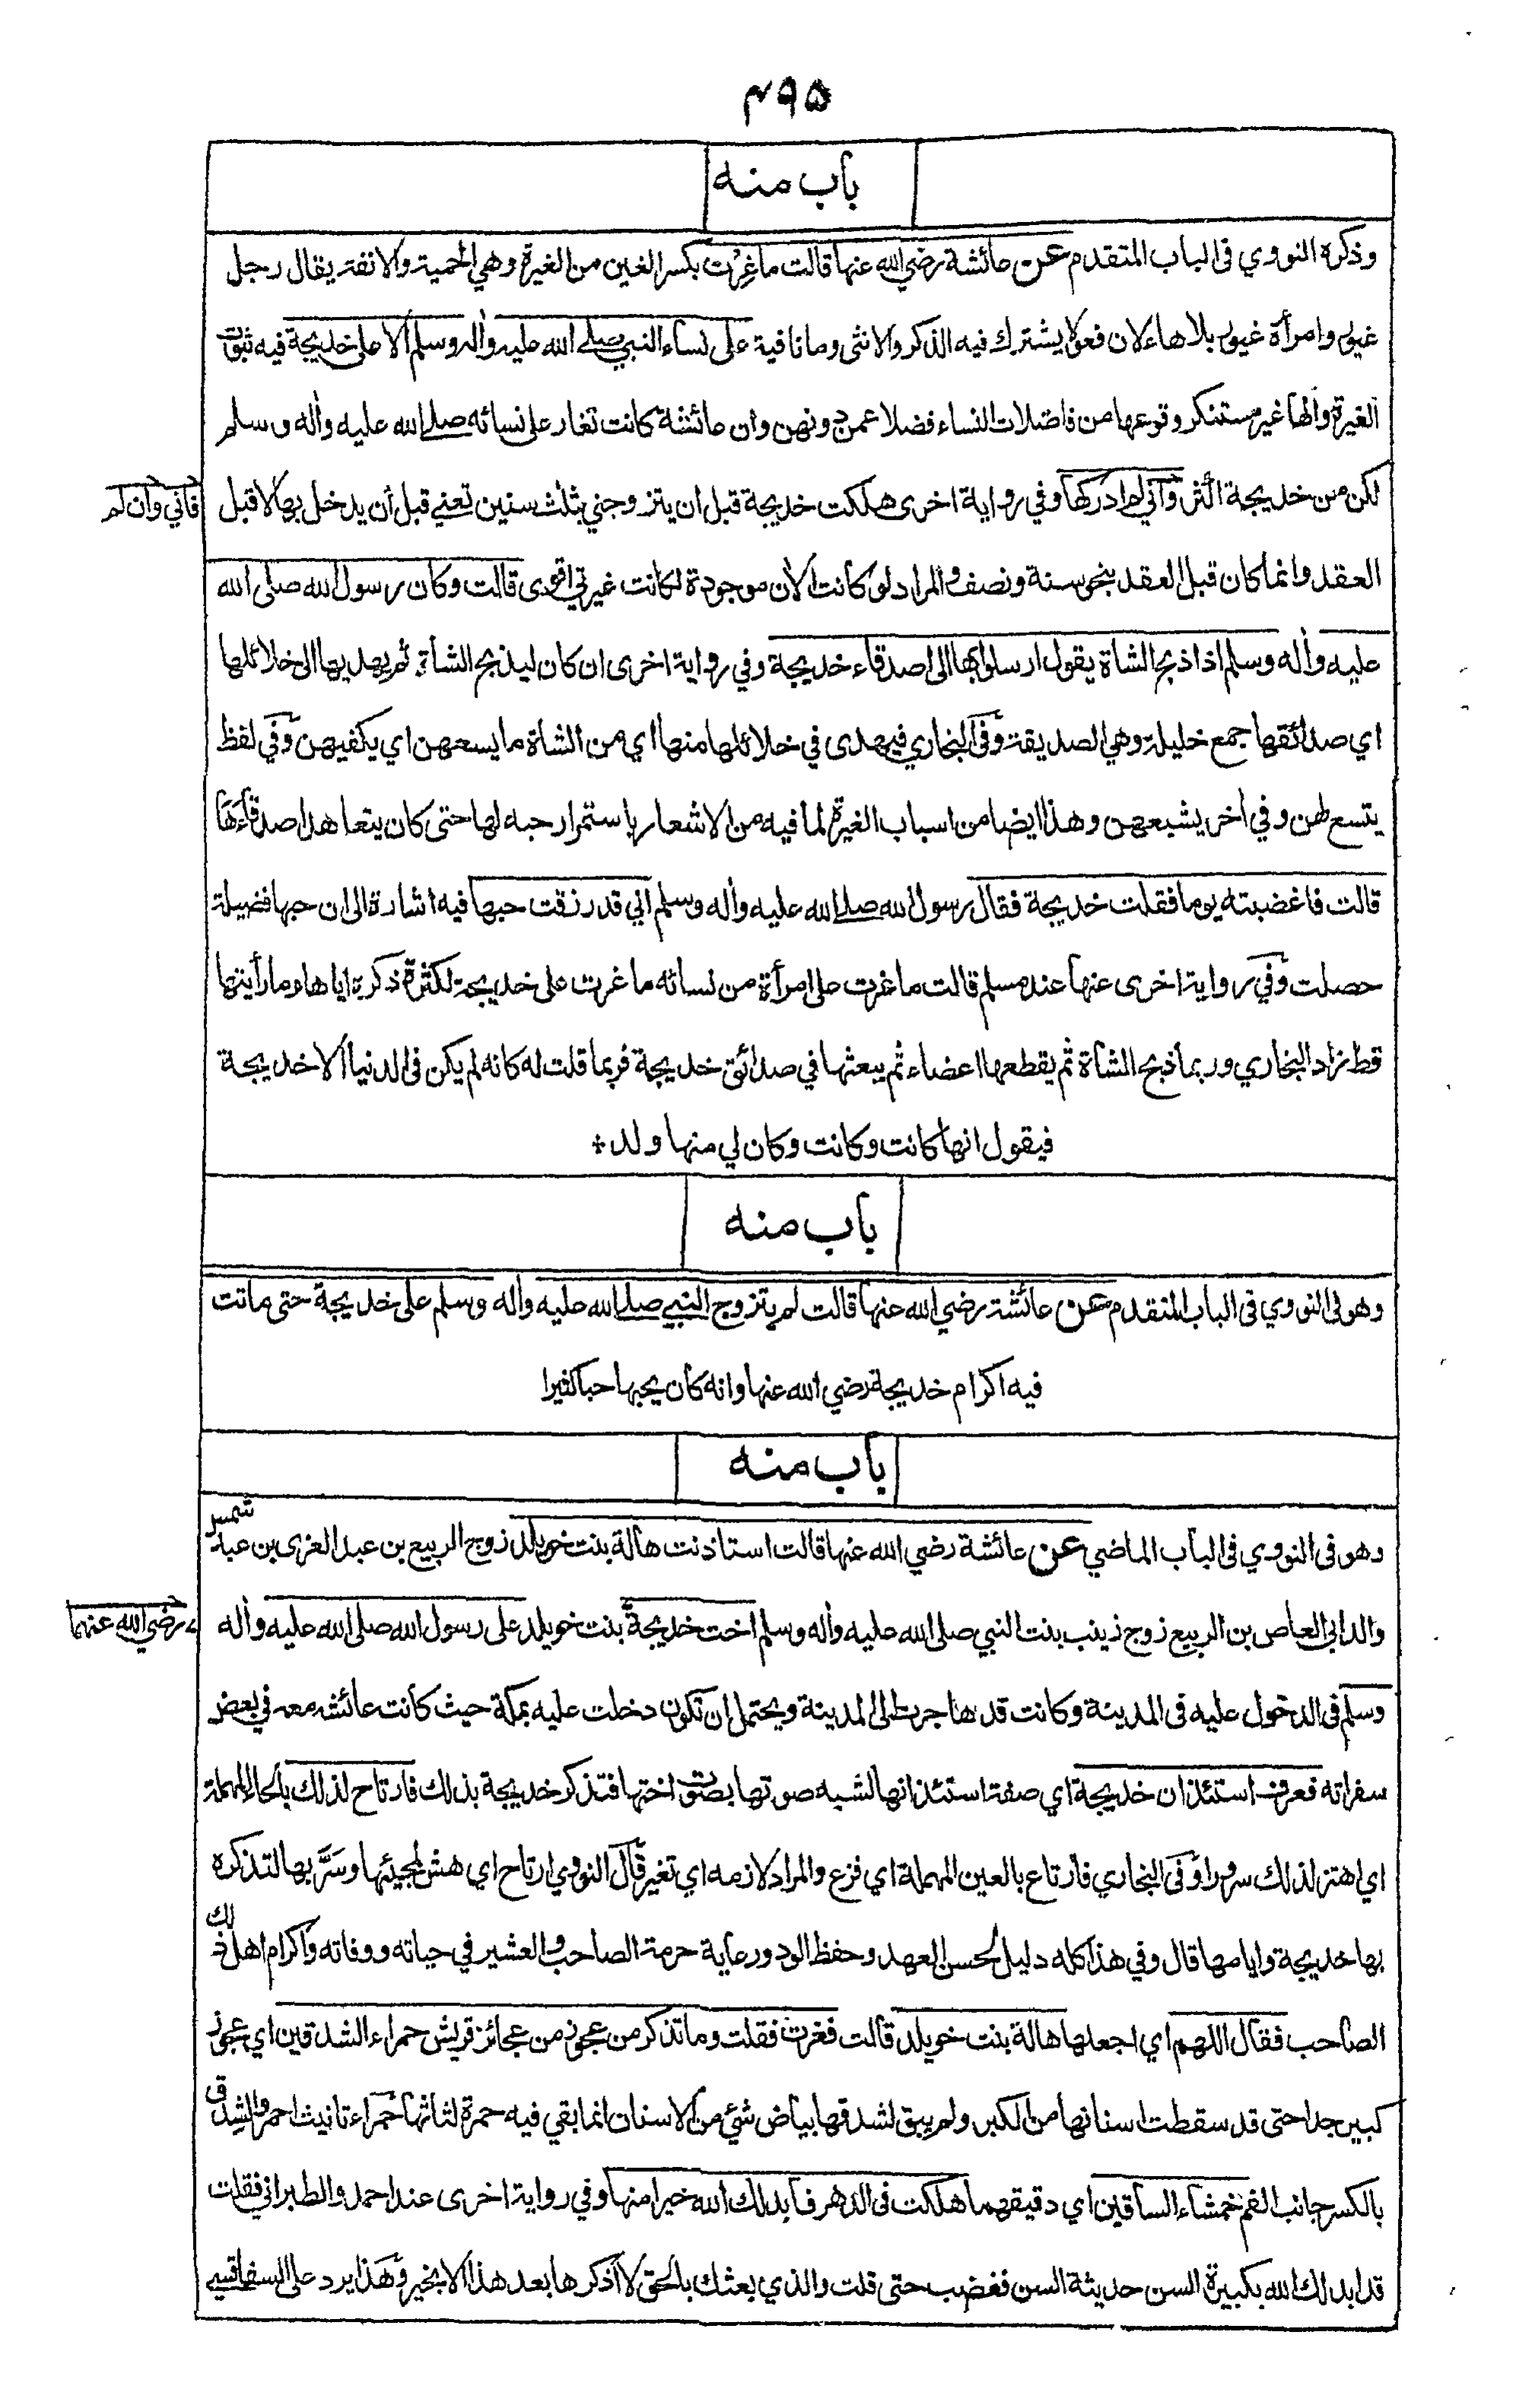 ٤٩٥
باب منه
وذكره النووي فى الباب المتقدم عن عائشة رضي الله عنها قالت ما غِرْت بكسر الغين من الغيرة وهي الحمية والانفة يقال رجل
غيور وامرأة غيور بلا هاء لان فعولا يشترك فيه الذكر والانثى وما نافية على نساء النبي صلى الله عليه واٰله وسلم الا على خديجة فيه ثبوت
الغيرة وانها غير مستنكر وقوعها من فاضلات النساء فضلا عمن دونهن وان عائشة كانت تغار على نسائه صلى الله عليه واٰله وسلم
لكن من خديجة اكثر واني لم ادركها وفي رواية اخرى هلكت خديجة قبل ان يتزوجني بثلث سنين تعني قبل أن يدخل بها لا قبل
فاني وان لم
العقد وانما كان قبل العقد بنحو سنة ونصف والمراد لو كانت الأن موجودة لكانت غيرتي اقوى قالت وكان رسول الله صلى الله
عليه واٰله وسلم اذا ذبح الشاة يقول ارسلوا بها الى اصدقاء خديجة وفي رواية اخرى ان كان ليذبح الشاة ثم يهديها الى خلائلها
اي صدائقها جمع خليلة وهي الصديقة وفى البخاري فيهدى في خلائلها منها اي من الشاة ما يسعهن اي يكفيهن وفي لفظ
يتسع لهن وفي أخر يشبعهن وهذا ايضا من اسباب الغيرة لما فيه من الاشعار باستمرار حبه لها حتى كان يتعاهد اصدقاءها
قالت فاغضبته يوما فقلت خديجة فقال رسول الله صلى الله عليه واٰله وسلم اني قد رزقت حبها فيه اشارة الى ان حبها فضيلة
حصلت وفي رواية اخرى عنها عند مسلم قالت ما غرت على امرأة من نسائه ما غرت على خديجة لكثرة ذكره اياها وما رأيتها
قط زاد البخاري وربما ذبح الشاة ثم يقطعها اعضاء ثم يبعثها في صدائق خديجة فربما قلت له كانه لم يكن فى الدنيا الا خديجة
فيقول انها كانت وكانت وكان لي منها ولد
باب منه
وهو فى النووي فى الباب المتقدم عن عائشة رضي الله عنها قالت لم يتزوج النبي صلى الله عليه واٰله وسلم على خديجة حتى ماتت
فيه اكرام خديجة رضي الله عنها وانه كان يحبها حبا كثيرا
باب منه
وهو فى النووي فى الباب الماضي عن عائشة رضي الله عنها قالت استاذنت هالة بنت خويلد زوج الربيع بن عبد العزى بن عبد شمس
والد ابى العاص بن الربيع زوج زينب بنت النبي صلى الله عليه واٰله وسلم اخت خديجة بنت خويلد على رسول الله صلى الله عليه واٰله
رضي الله عنهما
وسلم فى الدخول عليه فى المدينة وكانت قد هاجرت الى المدينة ويحتمل ان تكون دخلت عليه بمكة حيث كانت عائشة معه في بعض
سفراته فعرف استئذان خديجة اي صفة استئذانها لشبه صوتها بصوت اختها فتذكر خديجة بذلك فارتاح لذلك بالحاء المهملة
اي اهتز لذلك سرورا وفى البخاري فارتاع بالعين المهملة اي فزع والمراد لازمه اي تغير قال النووي ارتاح اي هش لمجيئها وسَرَّ بها لتذكره
بها خديجة وايامها قال وفي هذا كله دليل لحسن العهد وحفظ الود ورعاية حرمة الصاحب والعشير في حياته ووفاته واكرام اهل ذلك
الصاحب فقال اللهم اي اجعلها هالة بنت خويلد قالت فغرت فقلت وما تذكر من عجوز من عجائز قريش حمراء الشدقين اي عجوز
كبير جدا حتى قد سقطت اسنانها من الكبر ولم يبق لشدقها بياض شيء من الاسنان انما بقي فيه حمرة لثاتها حمراء تانيث احمر والشِدق
بالكسر جانب الفم خمشاء الساقين اي دقيقهما هلكت فى الدهر فابدلك الله خيرا منها وفي رواية اخرى عند احمد والطبراني فقلت
قد ابدلك الله بكبيرة السن حديثة السن فغضب حتى قلت والذي بعثك بالحق لا اذكرها بعد هذا الا بخير وهذا يرد على السفاقسي